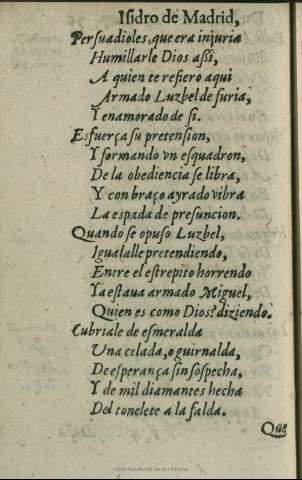 Isidro de Madrid,
Persuadioles, que era injuria
Humillarle Dios assi,
A quien te refiero aqui
Armado Luzbel de furia,
Y enamorado de si.
Esfuerça su pretension,
Y formando vn esquadron,
De la obediencia se libra,
Y con braço ayrado vibra
La espada de presuncion.
Quando se opuso Luzbel,
Igualalle pretendiendo,
Entre el estrepito horrendo
Ya estaua armado Miguel,
Quien es como Dios? diziendo.
Cubriale de esmeralda
Una celada, o guirnalda,
De esperança sin sospecha,
Y de mil diamantes hecha
Del tonelete a la falda.
Que
Real Academia de la Historia